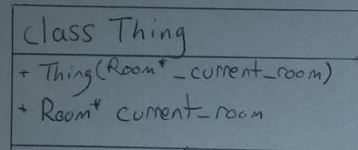 class Thing
+ Thing(Room* _current_room)
+ Room* current_room